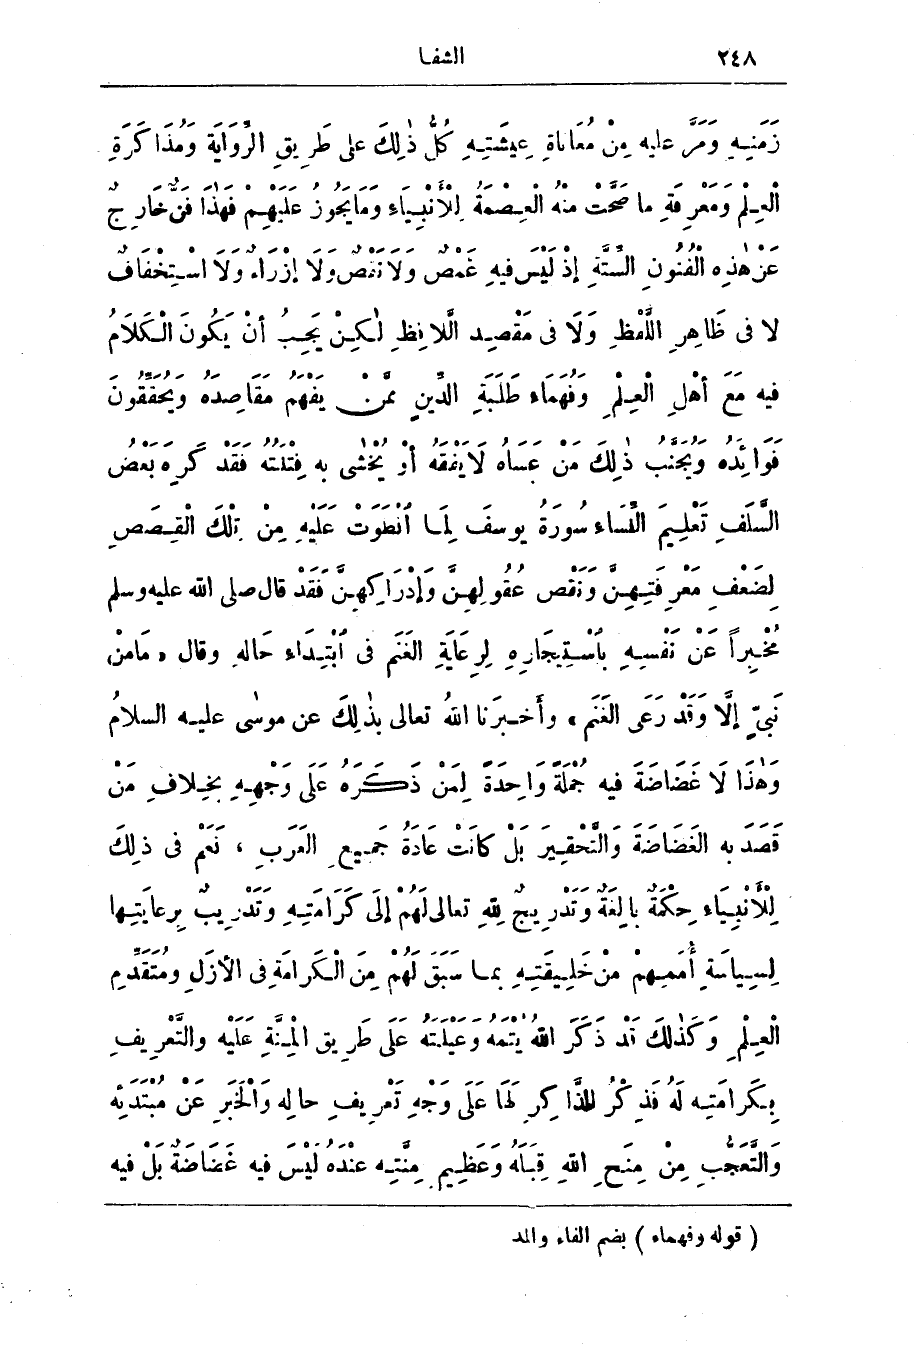 ٢٤٨ الشفا
زَمَنِهِ وَمَرَّ عليه مِنْ مُعَانَاةِ عِيشَتِهِ كُلُّ ذٰلِكَ على طَرِيقِ الرِّوَايَةِ وَمُذَاكَرَةِ
الْعِلْمِ وَمَعْرِفَةِ ما صَحَّتْ منه الْعِصْمَةُ لِلْأَنْبِيَاءِ وما يَجُوزُ عليهم فهٰذا فَنٌّ خارِجٌ
عَنْ هٰذِهِ الْفُنُونِ السِّتَّةِ إذْ لَيْسَ فيهِ غَمْصٌ وَلَا نَقْصٌ ولا إزْرَاءٌ ولَا اسْتِخْفَافٌ
لا فى ظَاهِرِ اللَّفْظِ وَلَا فى مَقْصِدِ الَّلافِظِ لٰكِنْ يَجِبُ أنْ يَكُونَ الْكَلَامُ
فيه مَعَ أهْلِ الْعِلْمِ وَفُهَمَاءِ طَلَبَةِ الدِّينِ مِمَّنْ يَفْهَمُ مَقَاصِدَهُ ويُحَقِّقُونَ
فَوَائِدَهُ ويُجَنَّبُ ذٰلِكَ مَنْ عَسَاهُ لَا يَفْقَهُ أو يُخْشٰى بِهِ فِتْنَتُهُ فَقَدْ كَرِهَ بعضُ
السَّلَفِ تَعْلِيمَ النِّسَاءِ سُورَةَ يوسفَ لِمَا انْطَوَتْ عَلَيْهِ مِنْ تِلْكَ الْقِصَصِ
لِضَعْفِ مَعْرِفَتِهِنَّ وَنَقْصِ عُقُولِهِنَّ وَإدْرَاكِهِنَّ فَقَدْ قال صلى الله عليه وسلم
مُخْبِراً عَنْ نَفْسِهِ بِاسْتِيجَارِهِ لِرِعَايَةِ الغَنَمِ فى ابْتِدَاءِ حَالِهِ وقال « مَامِنْ
نَبِىٍّ إلَّا وَقَدْ رَعَى الغَنَمَ » وأَخْبَرَنا اللهُ تعالى بذٰلِكَ عن موسٰى عليه السلامُ
وَهٰذَا لَا غَضَاضَةَ فيه جُمْلَةً وَاحِدَةً لِمَنْ ذَكَرَهُ عَلَى وَجْهِهِ بِخِلَافِ مَنْ
قَصَدَ به الغَضَاضَةَ وَالتَّحْقِيرَ بَلْ كانَتْ عَادَةَ جَمِيعِ العَرَبِ ، نَعَمْ فى ذلِكَ
لِلْأَنْبِيَاءِ حِكْمَةٌ بالِغَةٌ وَتَدْرِيجٌ لِلّٰهِ تعالى لَهُمْ إلَى كَرَامَتِهِ وَتَدْرِيبٌ بِرِعَايَتِهَا
لِسِيَاسَةِ أُمَمِهِمْ مِنْ خَلِيقَتِهِ بما سَبَقَ لَهُمْ مِنَ الْكَرامَةِ فى الأزَلِ ومُتَقَدِّمِ
الْعِلْمِ وَكَذٰلِكَ قَدْ ذَكَرَ اللهُ يُتْمَهُ وَعَيْلَتَهُ عَلَى طَرِيقِ الْمِنَّةِ عَلَيْهِ والتَّعْرِيفِ
بِكَرَامَتِهِ لَهُ فَذِكْرُ الذَّاكِرِ لَهَا عَلَى وَجْهِ تَعْرِيفِ حالِهِ وَالْخَبَرِ عَنْ مُبْتَدَئِهِ
وَالتَّعَجُّبِ مِنْ مِنَحِ اللهِ قِبَلَهُ وَعَظِيمِ مِنَّتِهِ عندَهُ لَيْسَ فيه غَضَاضَةٌ بَلْ فيه
( قوله وفهماء ) بضم الفاء والمد